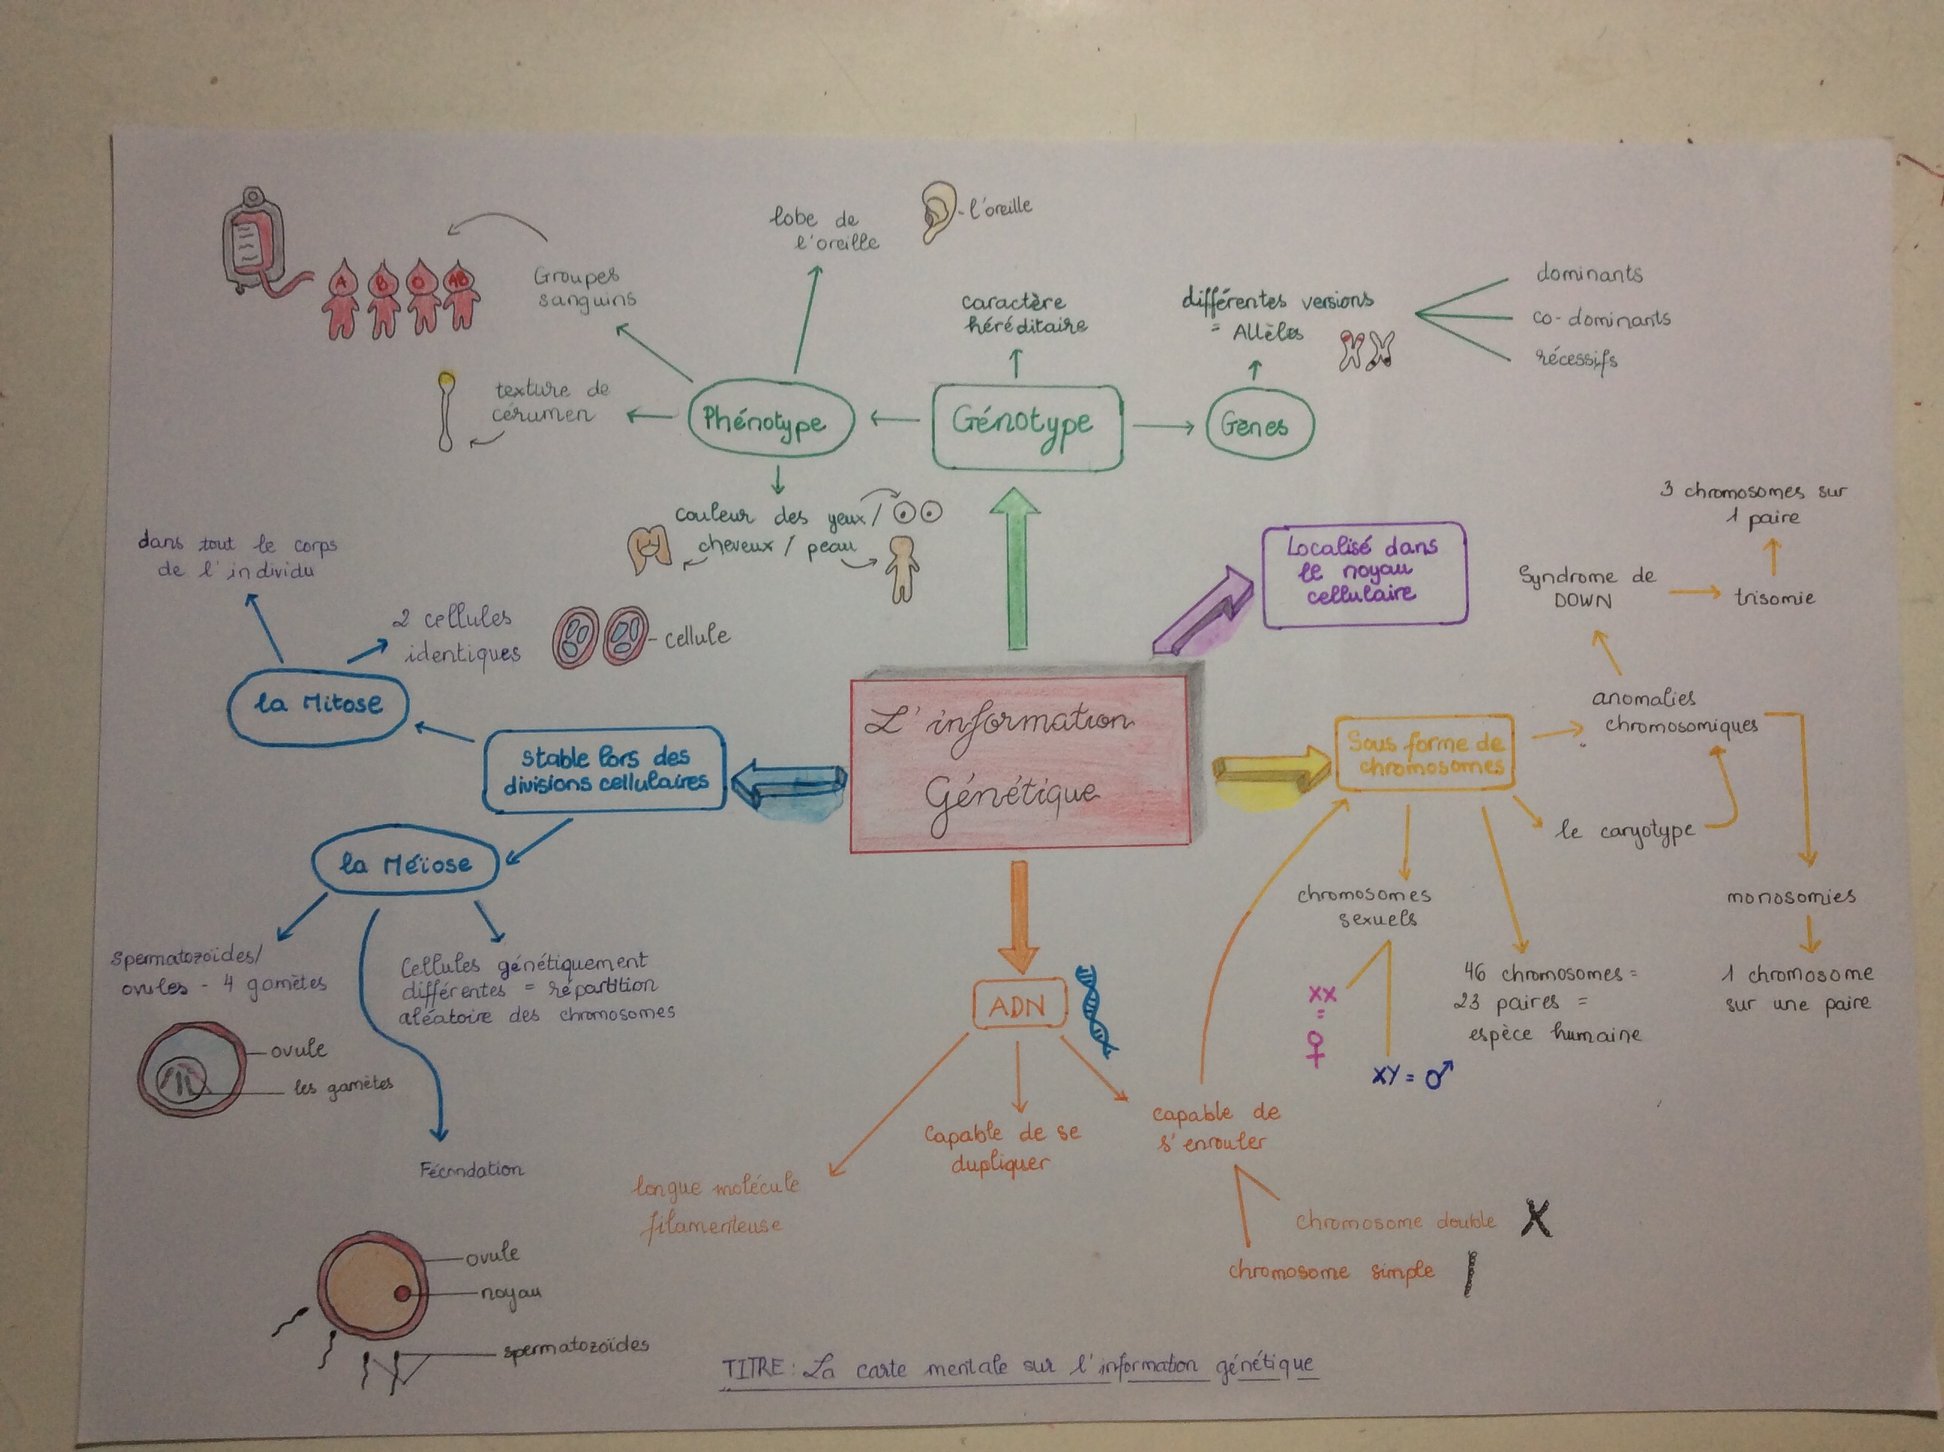 lobe de
l'oreille
l'oreille
Groupes
sanguins
A B O AB
texture de
cérumen
Phénotype
caractère
héréditaire
Génotype
différentes versions
= Allèles
dominants
co-dominants
récessifs
Gènes
couleur des yeux /
cheveux / peau
dans tout le corps
de l'individu
2 cellules
identiques
cellule
la Mitose
stable lors des
divisions cellulaires
la Méiose
Spermatozoïdes/
ovules - 4 gamètes
Cellules génétiquement
différentes = répartition
aléatoire des chromosomes
ovule
les gamètes
Fécondation
ovule
noyau
spermatozoïdes
L'information
Génétique
Localisé dans
le noyau
cellulaire
3 chromosomes sur
1 paire
Syndrome de
DOWN
trisomie
anomalies
chromosomiques
Sous forme de
chromosomes
le caryotype
chromosomes
sexuels
XX
=
♀
XY = ♂
46 chromosomes =
23 paires =
espèce humaine
monosomies
1 chromosome
sur une paire
ADN
longue molécule
filamenteuse
Capable de se
dupliquer
capable de
s'enrouler
chromosome double
chromosome simple
TITRE : La carte mentale sur l'information génétique